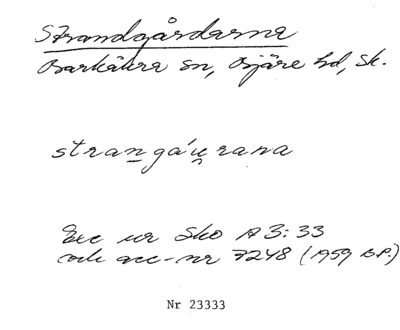 Strandgårdarna
Barkåkra sn, Bjäre hd, Sk.
strangáu̯rana
Exc ur Sko A 3:33
och acc-nr 7248 (1959 B.P.)
Nr 23333